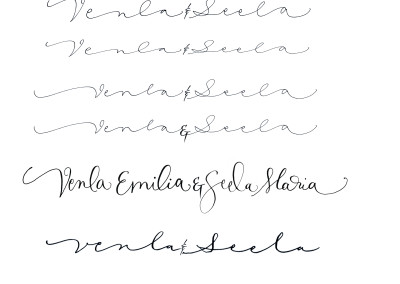 Venla & Seela
Venla & Seela
Venla & Seela
Venla & Seela
Venla Emilia & Seela Maria
Venla & Seela